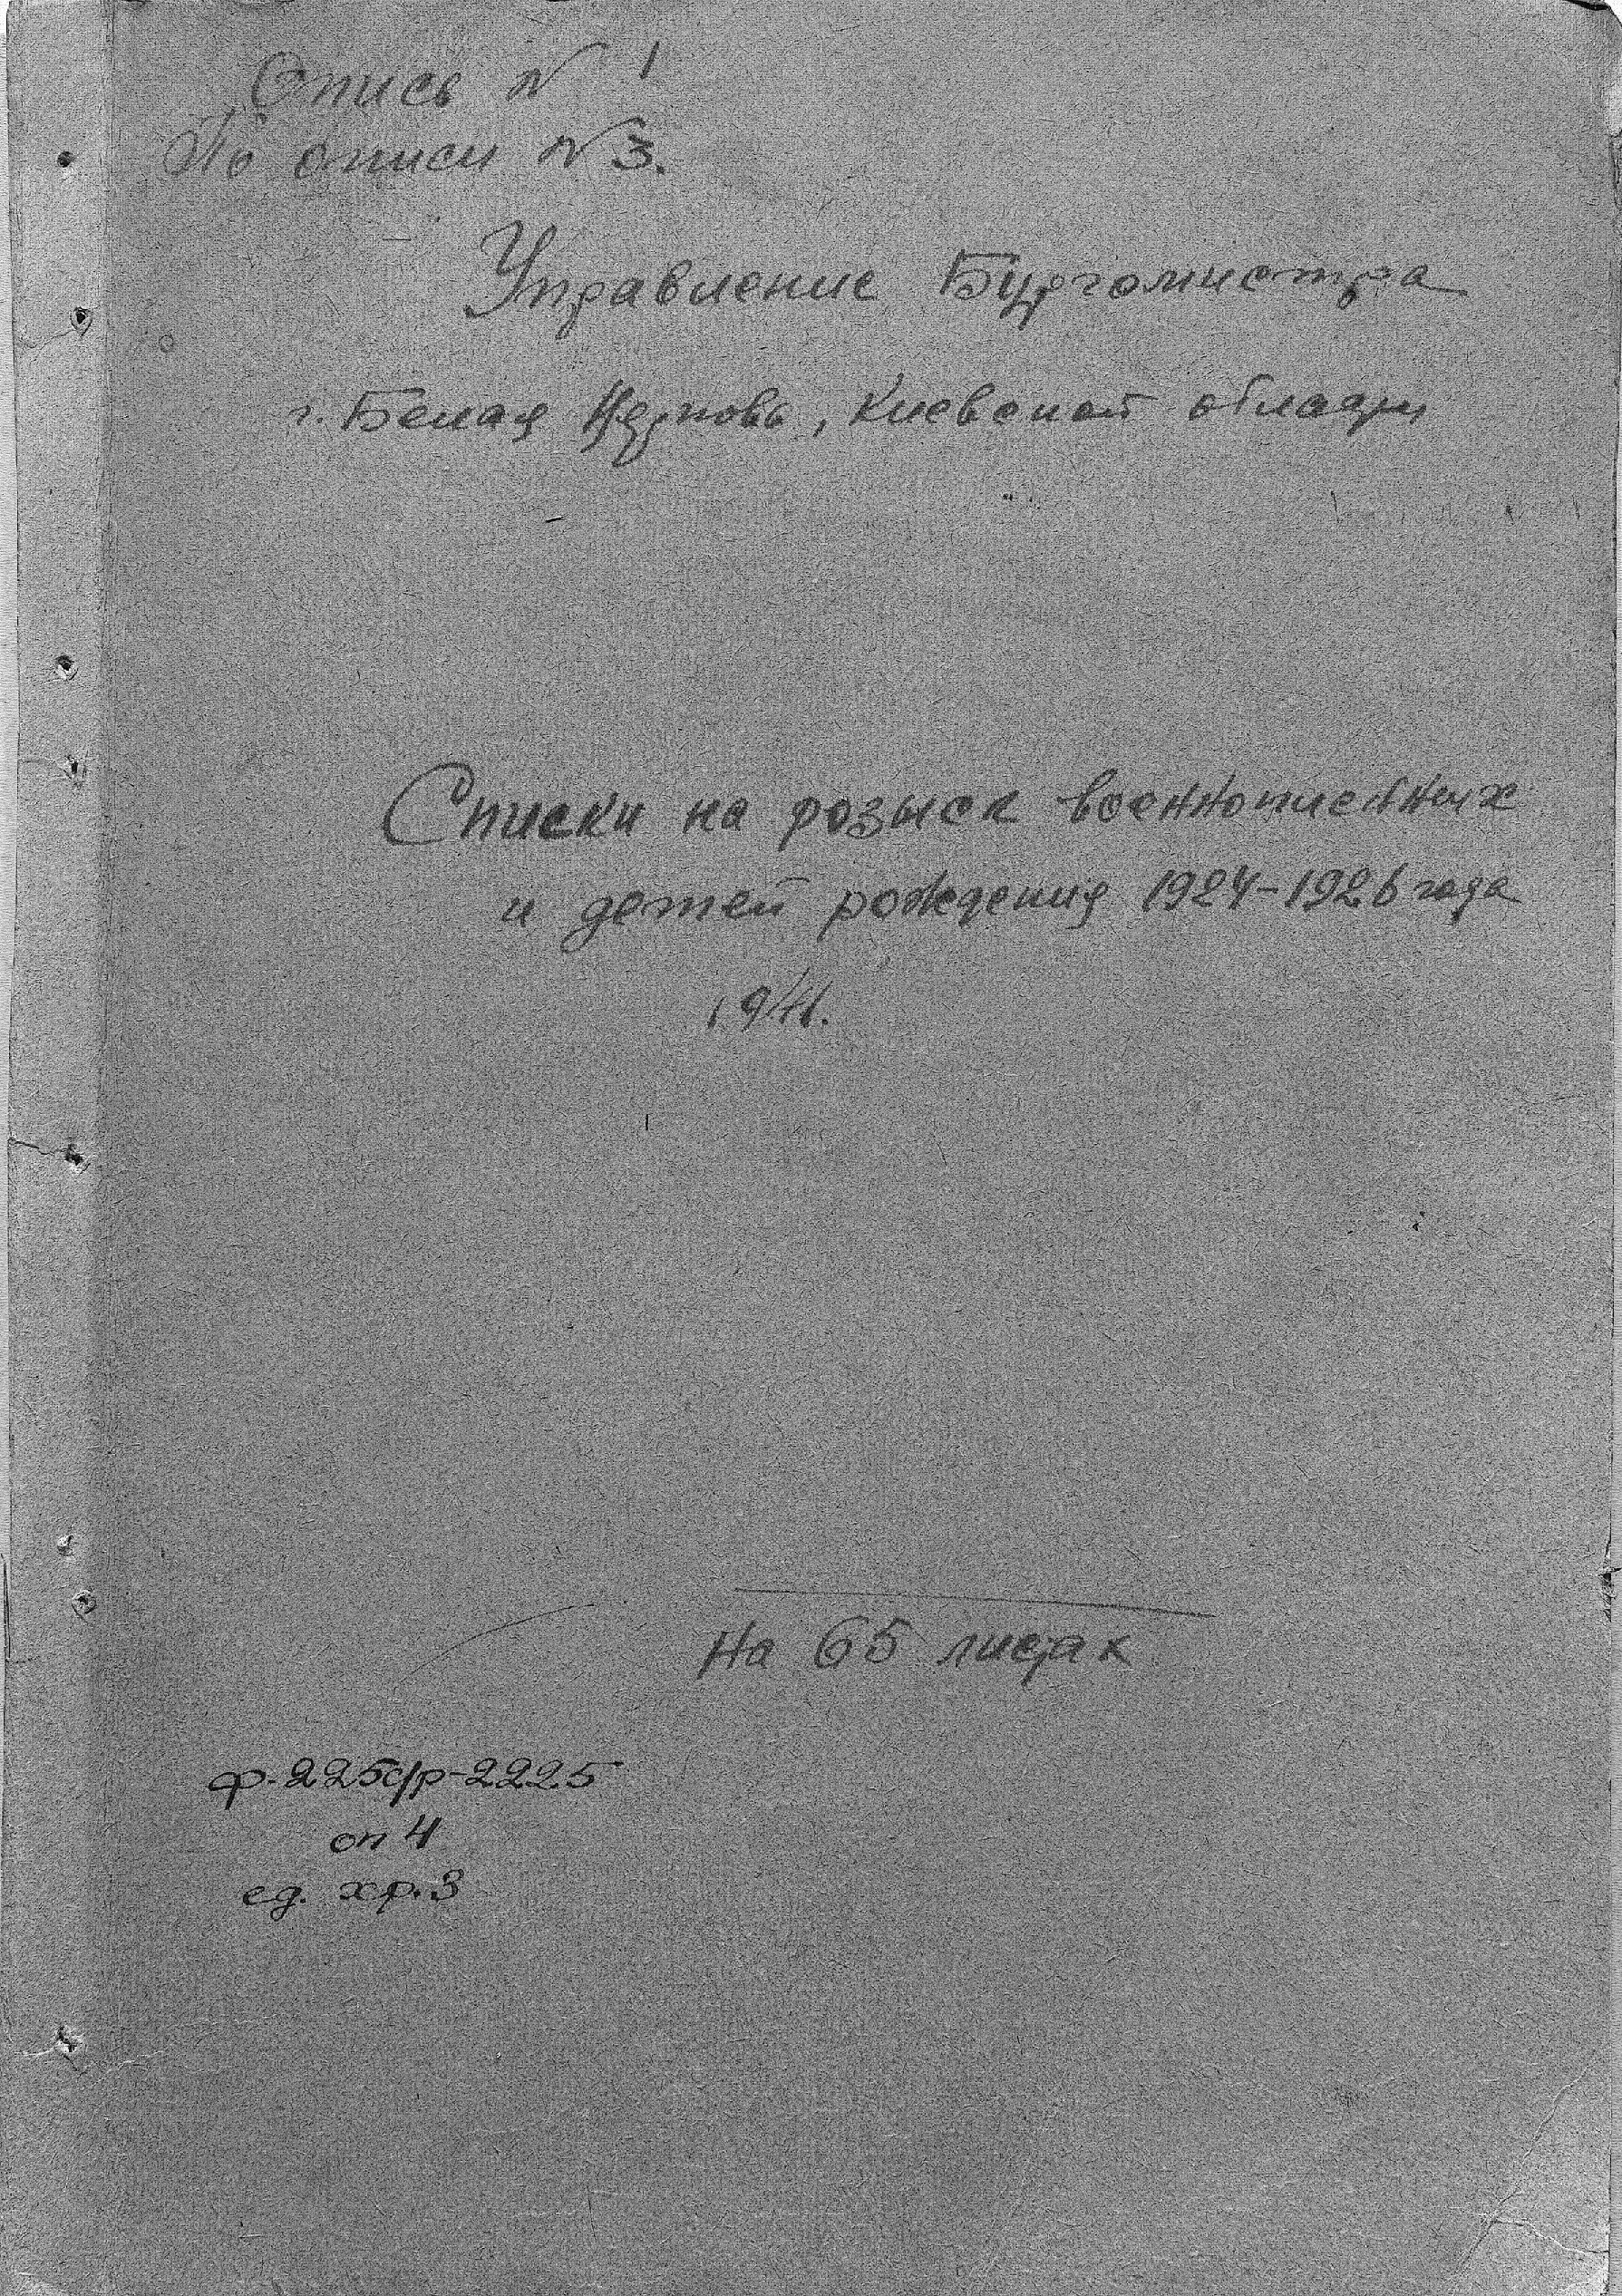 Опись N 1
По описи N 3.
Управление Бургомистра
г. Белая Церковь, Киевской области
Списки на розыск военнопленных
и детей рождения 1924-1926 года
1941.
На 65 листах
ф-225с/р-2225
оп 4
ед. хр. 3